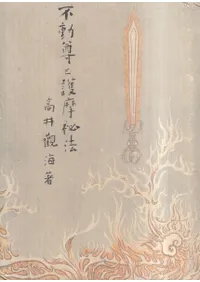 不動尊と護摩秘法
高井觀海著